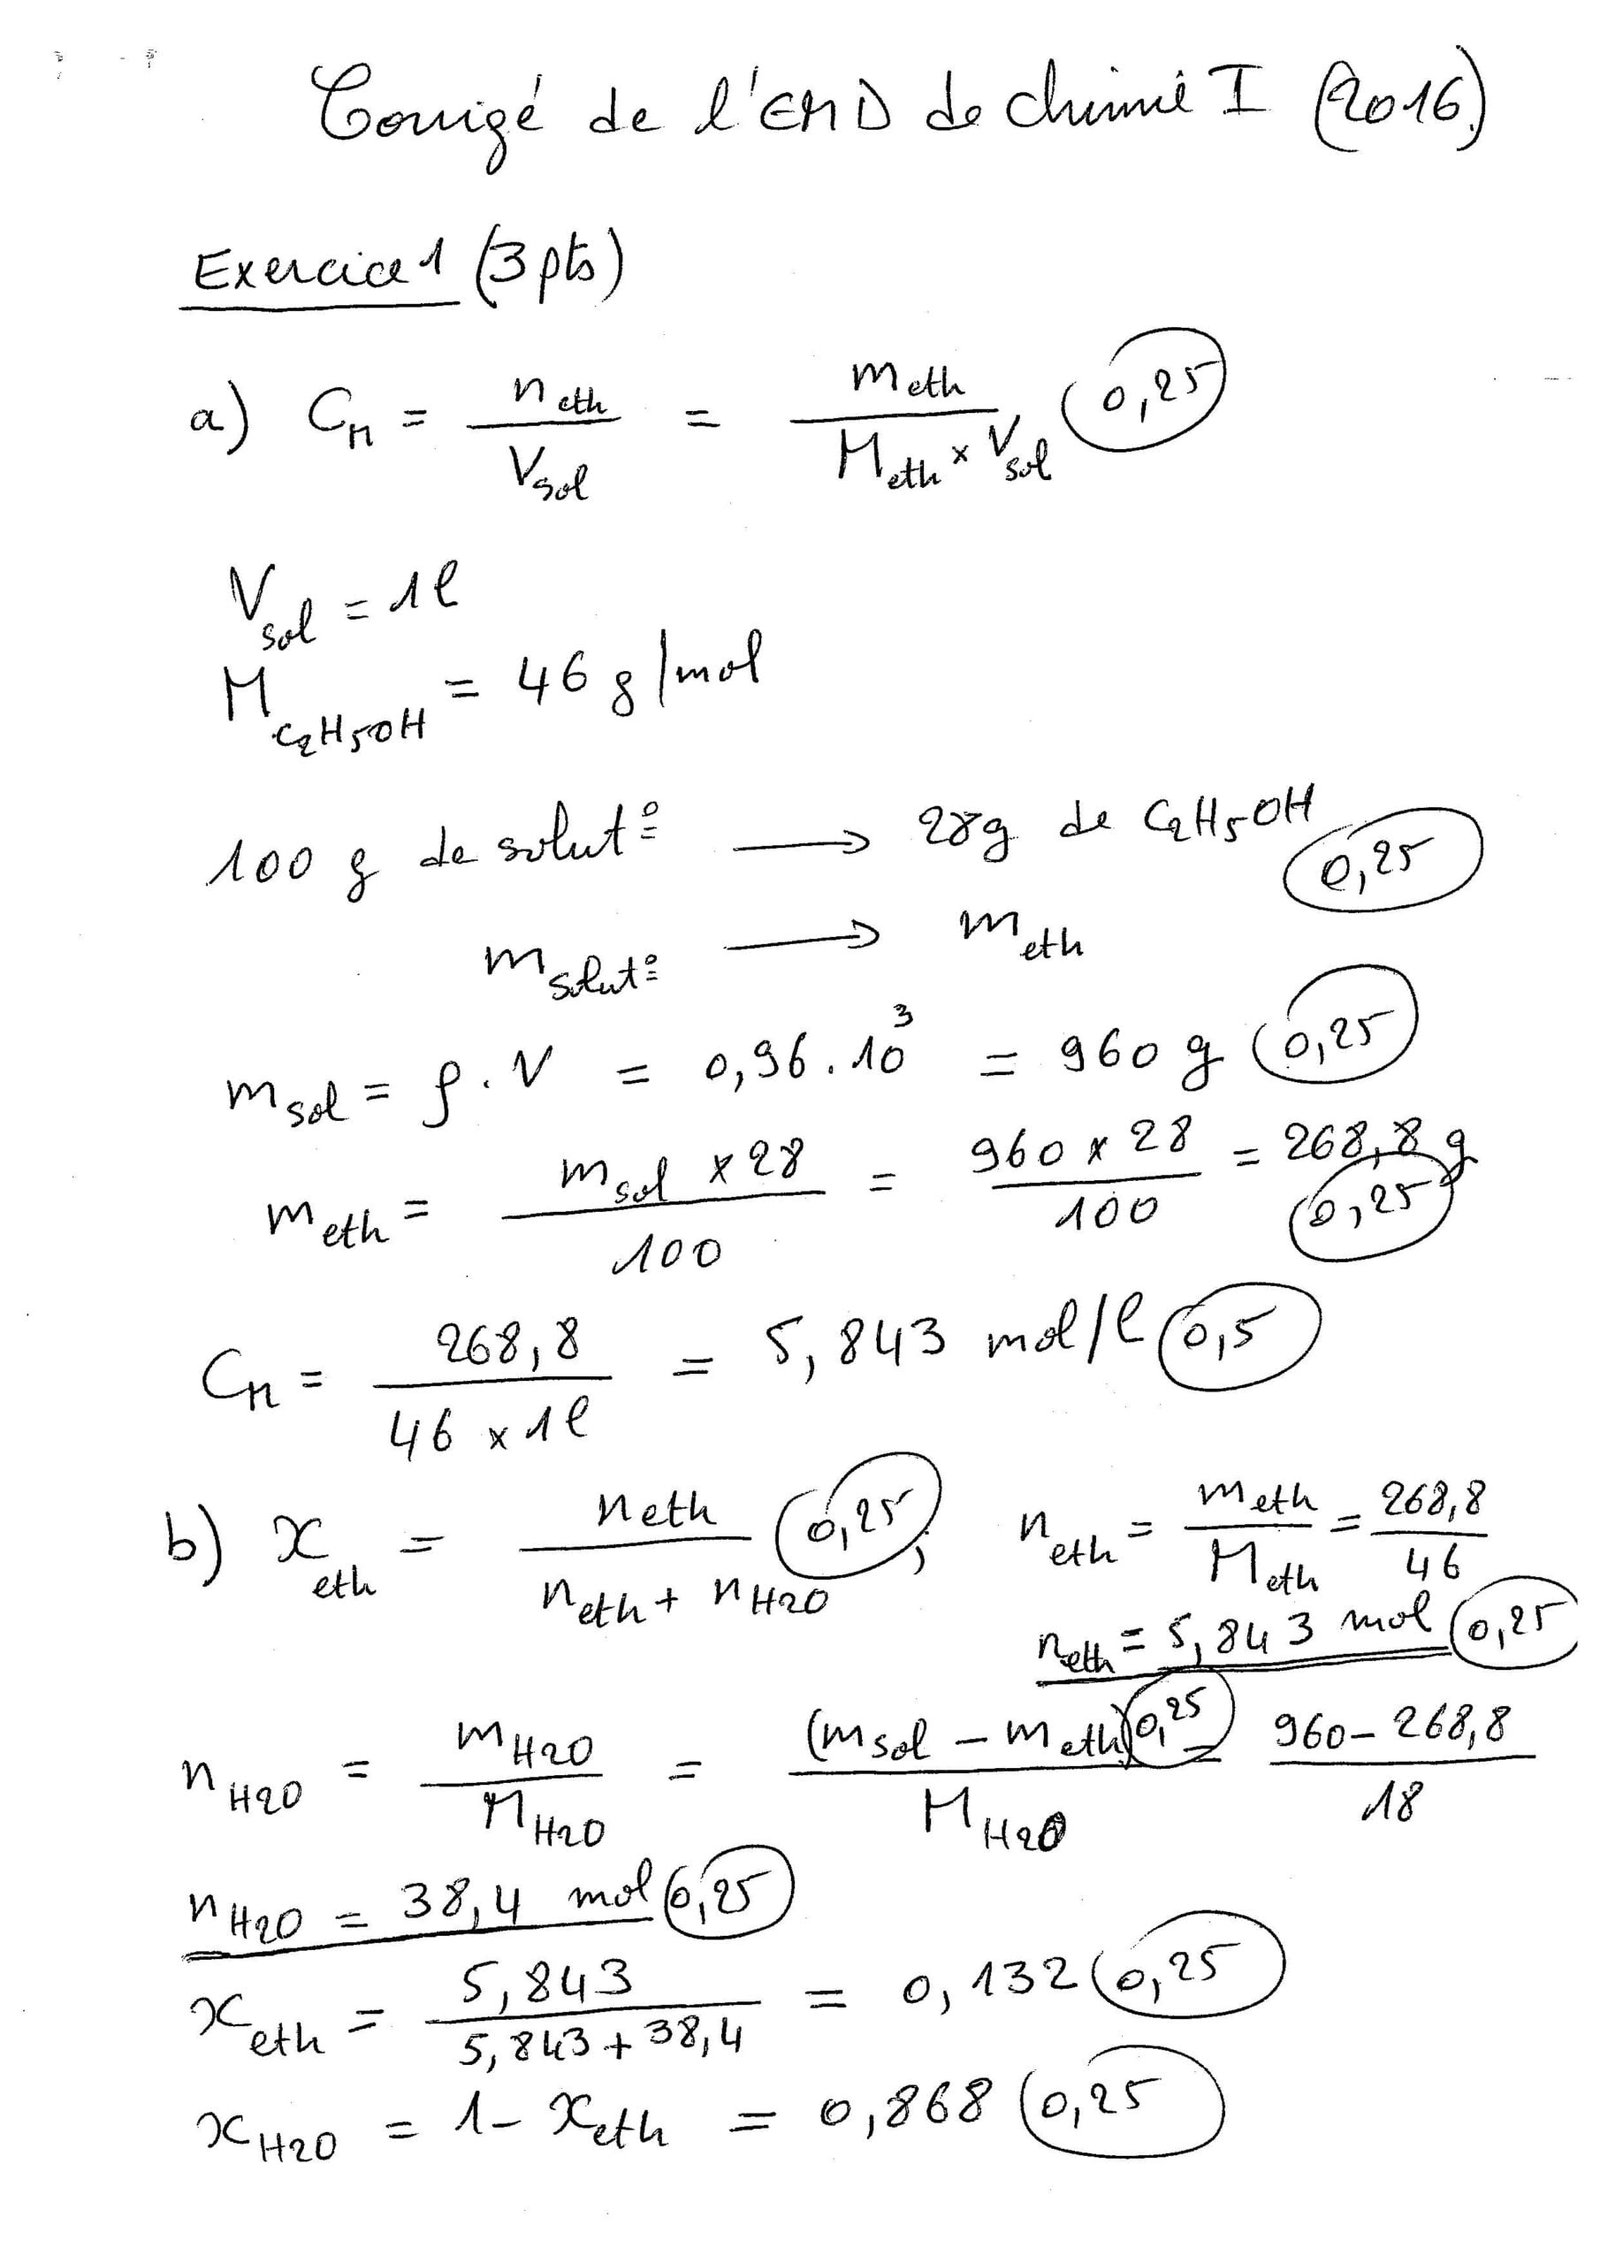 Corrigé de l'EMD de chimie I (2016)
Exercice 1 (3pts)
a) C_M = n_eth / V_sol = m_eth / (M_eth × V_sol) (0,25)
V_sol = 1l
M_C2H5OH = 46 g/mol
100 g de solut° → 28g de C2H5OH (0,25)
m_solut° → m_eth
m_sol = ρ . V = 0,96 . 10³ = 960 g (0,25)
m_eth = m_sol × 28 / 100 = 960 × 28 / 100 = 268,8 g (0,25)
C_M = 268,8 / (46 × 1l) = 5,843 mol/l (0,5)
b) x_eth = n_eth / (n_eth + n_H2O) (0,25) ; n_eth = m_eth / M_eth = 268,8 / 46
n_eth = 5,843 mol (0,25)
n_H2O = m_H2O / M_H2O = (m_sol − m_eth) / M_H2O (0,25) = (960 − 268,8) / 18
n_H2O = 38,4 mol (0,25)
x_eth = 5,843 / (5,843 + 38,4) = 0,132 (0,25)
x_H2O = 1 − x_eth = 0,868 (0,25)